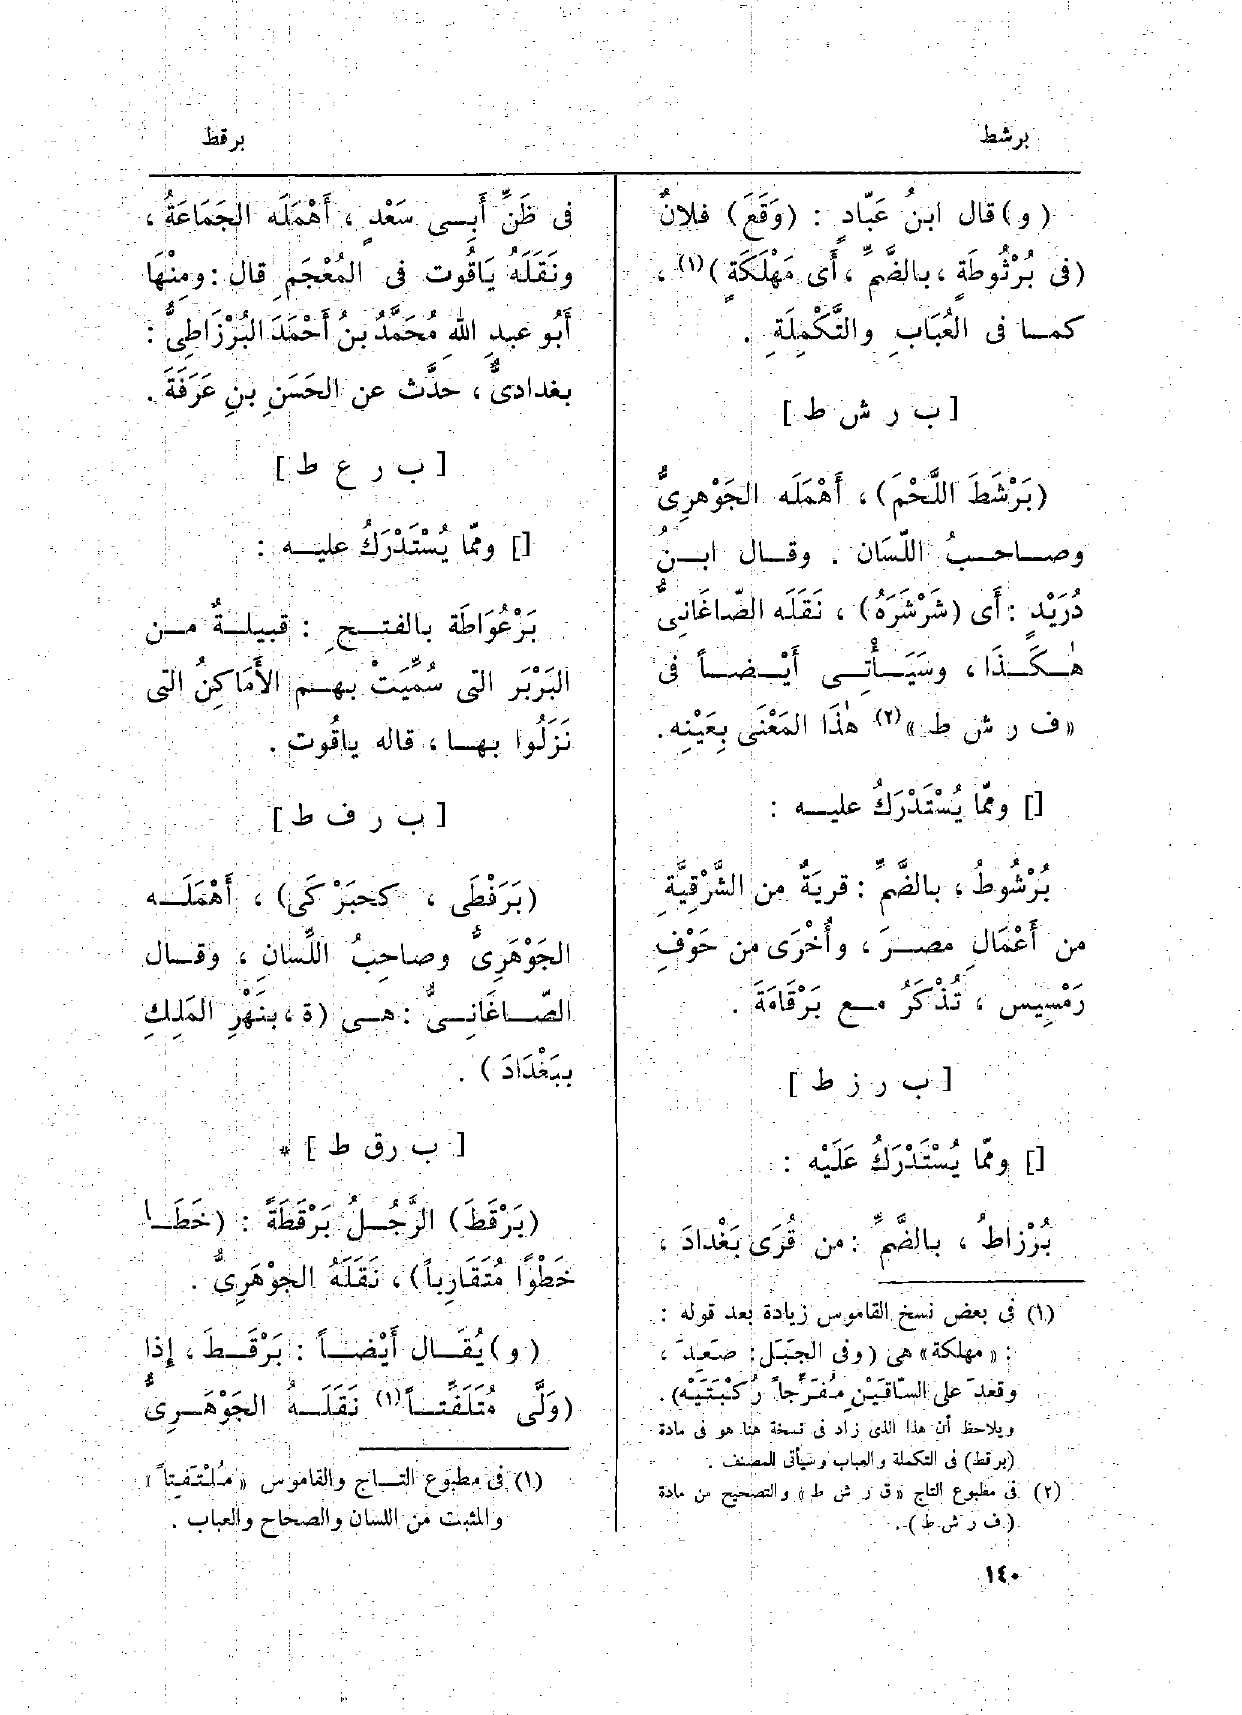 برشط
برقط
(و) قال ابنُ عَبّادٍ : (وَقَعَ) فلانٌ
(فى بُرْثُوطَةٍ ، بالضَّمِّ ، أَى مَهْلَكَةٍ)(١) ،
كما فى العُبَابِ والتَّكْمِلَةِ .
[ ب ر ش ط ]
(بَرْشَطَ اللَّحْمَ) ، أَهْمَلَه الجَوْهرِىُّ
وصاحبُ اللّسَان . وقال ابنُ
دُرَيْدٍ : أَى (شَرْشَرَهُ) ، نَقَلَه الصّاغَانِىُّ
هٰكَذَا ، وسَيَأْتِى أَيْضاً فى
«ف ر ش ط »(٢) هٰذَا المَعْنَى بِعَيْنِه.
[] وممّا يُسْتَدْرَكُ عليه :
بُرْشُوطُ ، بالضَّمِّ : قريَةٌ من الشَّرْقِيَّةِ
من أَعْمَالِ مصرَ ، وأُخْرَى من حَوْفِ
رَمْسِيس ، تُذْكَرُ مع بَرْقَامَةَ .
[ ب ر ز ط ]
[] وممّا يُسْتَدْرَكُ عَلَيْه :
بُرْزاطُ ، بالضَّمِّ : من قُرَى بَغْدادَ ،
(١) فى بعض نسخ القاموس زيادة بعد قوله :
: « مهلكة » هى (وفى الجَبَل : صَعِدَ ،
وقعدَ على السّاقَيْنِ مُفَرِّجاً رُكْبَتَيْه).
ويلاحظ أن هذا الذى زاد فى نسخة هنا هو فى مادة
(برقط) فى التكملة والعباب وسيأتى للمصنف .
(٢) فى مطبوع التاج «ق ر ش ط » والتصحيح من مادة
(ف ر ش ط ).
فى ظَنِّ أَبِى سَعْدٍ ، أَهْمَلَه الجَمَاعَةُ ،
ونَقَلَهُ يَاقُوت فى المُعْجَمِ قال : ومِنْهَا
أَبُو عبدِ اللهِ مُحَمَّدُ بنُ أَحْمَدَ البُرْزَاطِىُّ :
بغدادىٌّ ، حدَّث عن الحَسَنِ بنِ عَرَفَةَ .
[ ب ر ع ط ]
[] وممّا يُسْتَدْرَكُ عليه :
بَرْغُوَاطَة بالفتحِ : قبيلةٌ من
البَرْبَر التى سُمِّيَتْ بهم الأَمَاكِنُ التى
نَزَلُوا بها ، قاله ياقُوت .
[ ب ر ف ط ]
(بَرَفْطَى ، كحبَرْكَى) ، أَهْمَلَه
الجَوْهَرِىُّ وصاحِبُ اللِّسَانِ ، وقال
الصّاغَانِىُّ : هى (ة ، بنَهْرِ المَلِكِ
ببَغْدَادَ) .
[ ب ر ق ط ] *
(بَرْقَطَ) الرَّجُلُ بَرْقَطَةً : (خَطَا
خَطْوًا مُتَقَارِباً) ، نَقَلَهُ الجوْهَرِىُّ .
(و) يُقَال أَيْضاً : بَرْقَطَ ، إِذا
(وَلَّى مُتَلَفِّتاً)(١) نَقَلَهُ الجَوْهَرِىُّ
(١) فى مطبوع التاج والقاموس « مُلْتَفِتاً »
والمثبت من اللسان والصحاح والعباب .
١٤٠